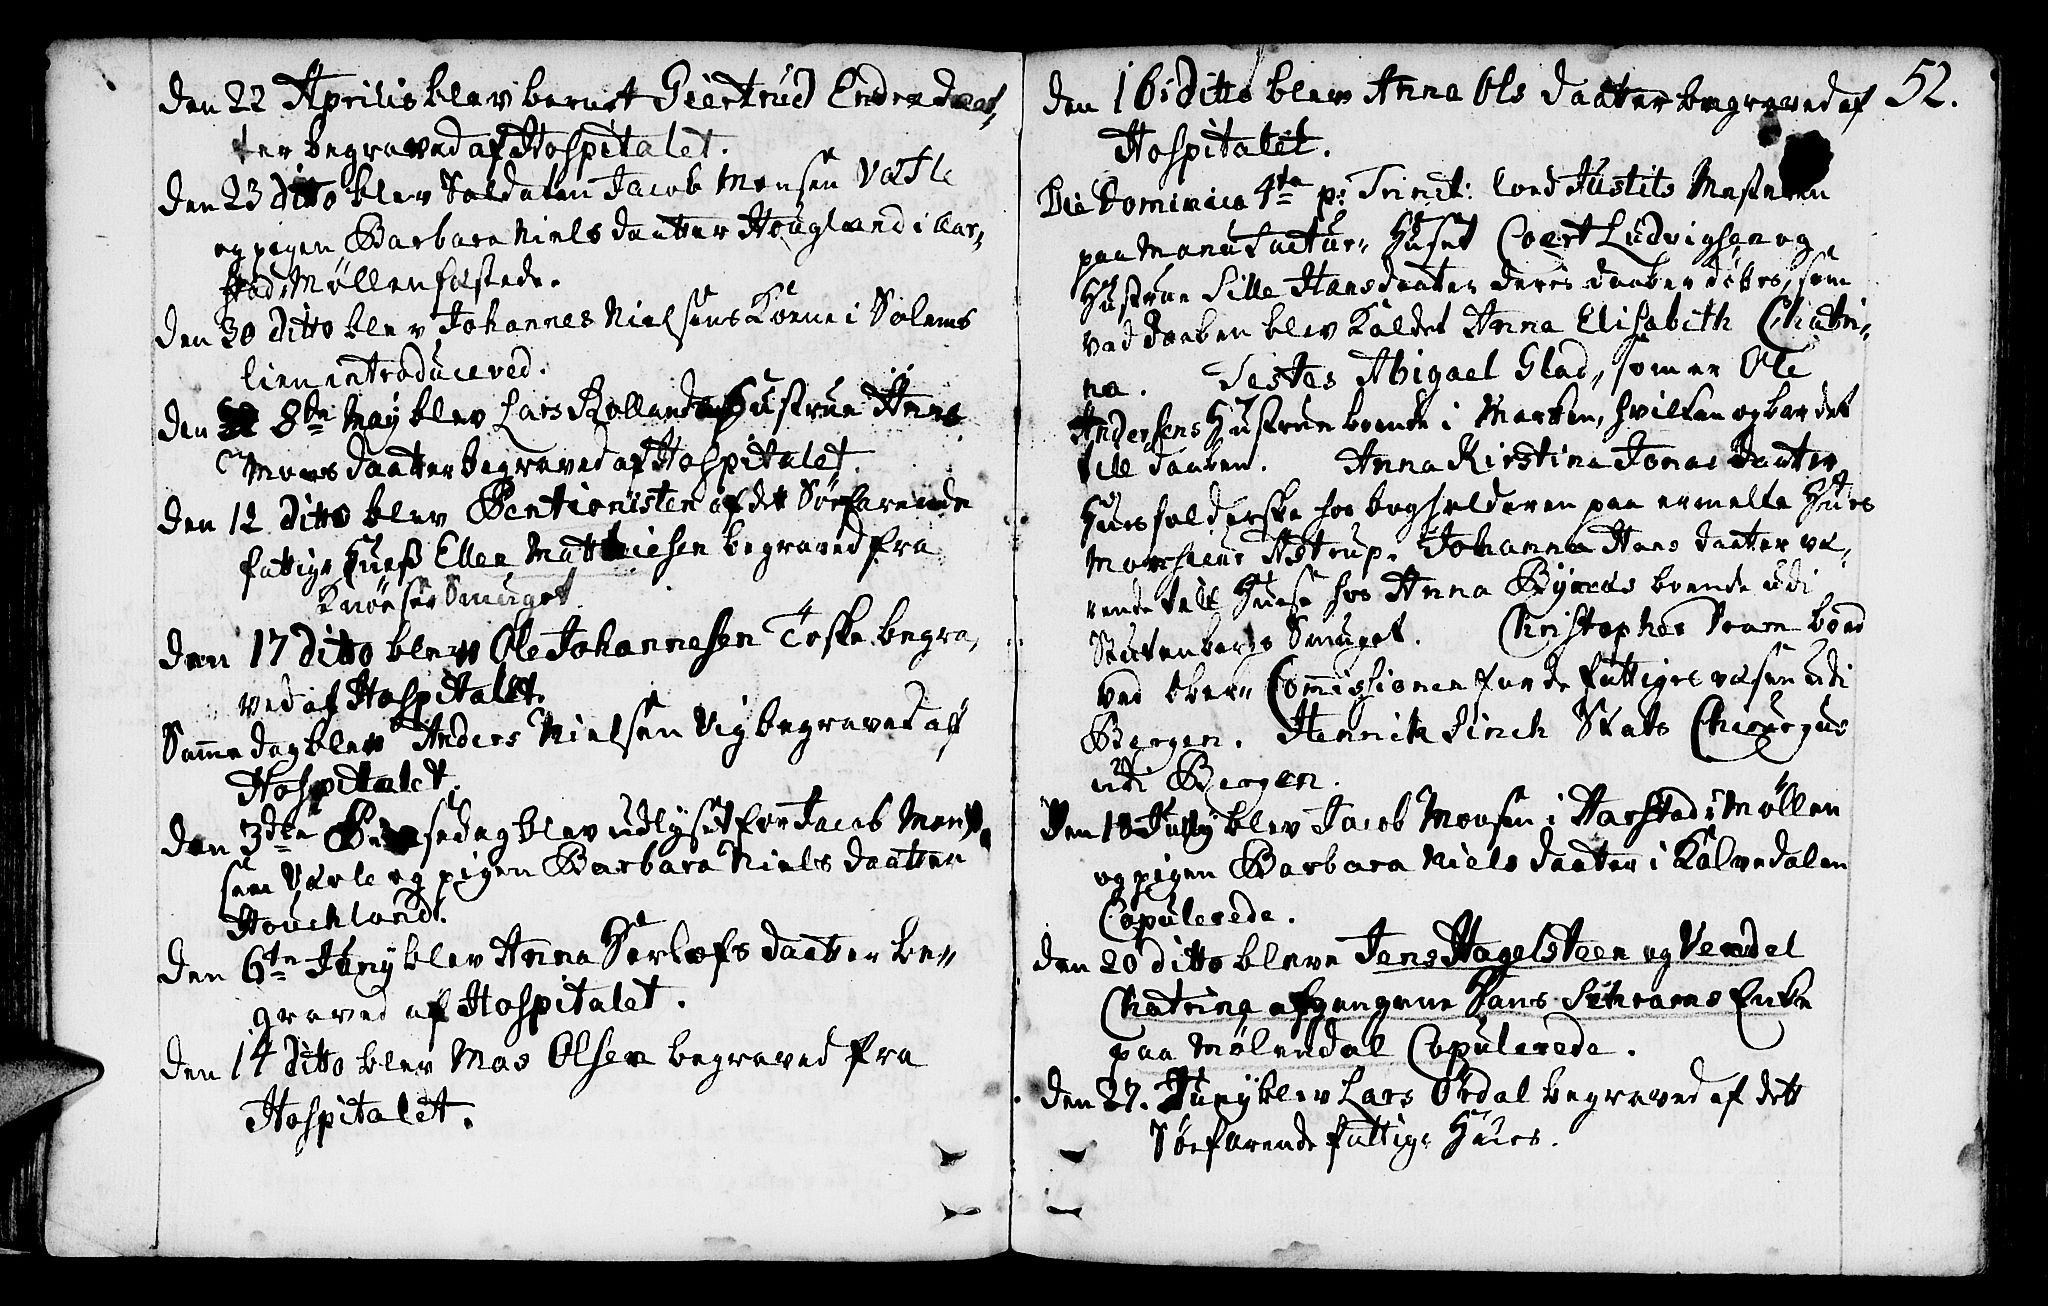 Den 22 Aprilis blev Geertrud Endres daat,
ter begraved af Hospitalet.
Den 23 ditto blev Soldaten Jacob Monsen
og pigen Barbara Niels daatter Hougland i Aar,
stad Møllen fæstede.
Den 30 ditto blev Johannes Nielsens Kone i Solems
lien introduceved.
Den 8de May blev Lars Rollands Hustrue Anna
Mons daatter begraved af Hospitalet.
Den 12 ditto blev Pentionisten af det Søefarende
fattige Huuß Ellen Mathiesen begraved fra
Knøser Smuget
Den 17 ditto blev Ole Johannesen Toske begra,
ved af Hospitalet.
Samme dag blev Anders Nielsen Vig begraved af
Hospitalet.
Den 3die Pintsedag blev udlyset for Jacob Mon,
sen Værle og pigen Barbara Niels daatter
Houchland.
Den 6te Juny blev Anna Herlofs daatter be„
graved af Hospitalet.
Den 14 ditto blev Mas Olsen begraved fra
Hospitalet.
52.
Den 16 ditto blev Anna Ols daatter begraved af
Hospitalet.
Die Dominica 4ta p: Trinit: loed Justits Mesteren
paa Manufactur„ Huset Coert Ludvigsen og
Hustrue Sille Hansdaater deres daaber døbes, som
ved daaben blev kaldet Anna Elisabeth Chatri„
na. Testes Abigael Glad, som er Ole
Andersens Hustrue boende i Marken, hvilken og bar det
till daaben. Anna Kirstina Jonas daater
Huusholderske hos bogholderen paa ermelte Huus
Monsieur Astrup. Johanna Hans daatter væ,
rende till Huuse hos Anna boende udi
Stutenbergs Smuget. Christopher boed
ved Ober„ Commissionen for de fattiges væsen udi
Bergen. Henrik Finch Skats Chirurgus
udi Bergen.
Den 18 July blev Jacob Monsen i Aarstad i Møllen
og pigen Barbara Niels daater i Kalvedalen
Copulerede.
Den 20 ditto bleve Jens Hagelsteen og Vendel
Chatrina afgangene Hans Schrams Enke
paa Mølendal Copulerede.
Den 27. Juny blev Lars Ørdal begraved af dett
Søefarende fattige Huus.